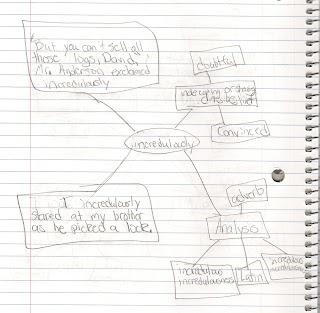 "But you can't sell all
those logs, David,"
Mr. Anderson exclaimed
incredulously
doubtful
disbelief
Convinced
incredulously
I incredulously
stared at my brother
as he picked a lock.
adverb
Analysis
incredulous
incredulousness
Latin